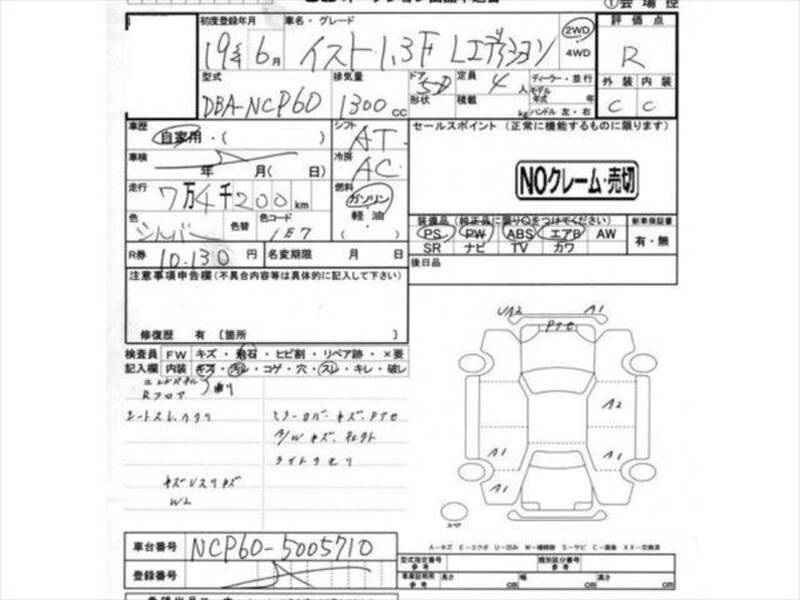 ①会場控
初度登録年月 車名・グレード 評価点
19年6月 イスト 1.3F Lエディション 2WD 4WD R
型式 排気量 ドア 定員 ディーラー・並行 外装 内装
DBA-NCP60 1300cc 5D 4人 モデル年式 年 C C
形状 積載 kg ハンドル 左・右
車歴 シフト セールスポイント(正常に機能するものに限ります)
自家用・( ) AT
車検 年 月( 日) 冷房 AC
NOクレーム・売切
走行 7万4千200km 燃料 ガソリン
軽油
( )
色 シルバー 色替 色コード 1E7
装備品(純正品に限り○をつけてください) 新車保証書
PS PW ABS エアB AW 有・無
SR ナビ TV カワ
R券 10.130円 名変期限 月 日 後日品
注意事項申告欄(不具合内容等は具体的に記入して下さい)
修復歴 有〔箇所 〕
検査員 FW キズ・飛石・ヒビ割・リペア跡・×要
記入欄 内装 キズ・汚レ・コゲ・穴・スレ・キレ・破レ
エンドパネル
Rフロア
曲り
シートスレ、
キズ
W2
UA2
A1
A2
A1
A1
A1
スペア
A-キズ E-エクボ U-凹み W-補修跡 S-サビ C-腐食 XX-交換済
車台番号 NCP60-5005710
登録番号
型式指定番号 参考 類別区分番号 参考
車庫証明用 参考 長さ cm 幅 cm 高さ cm